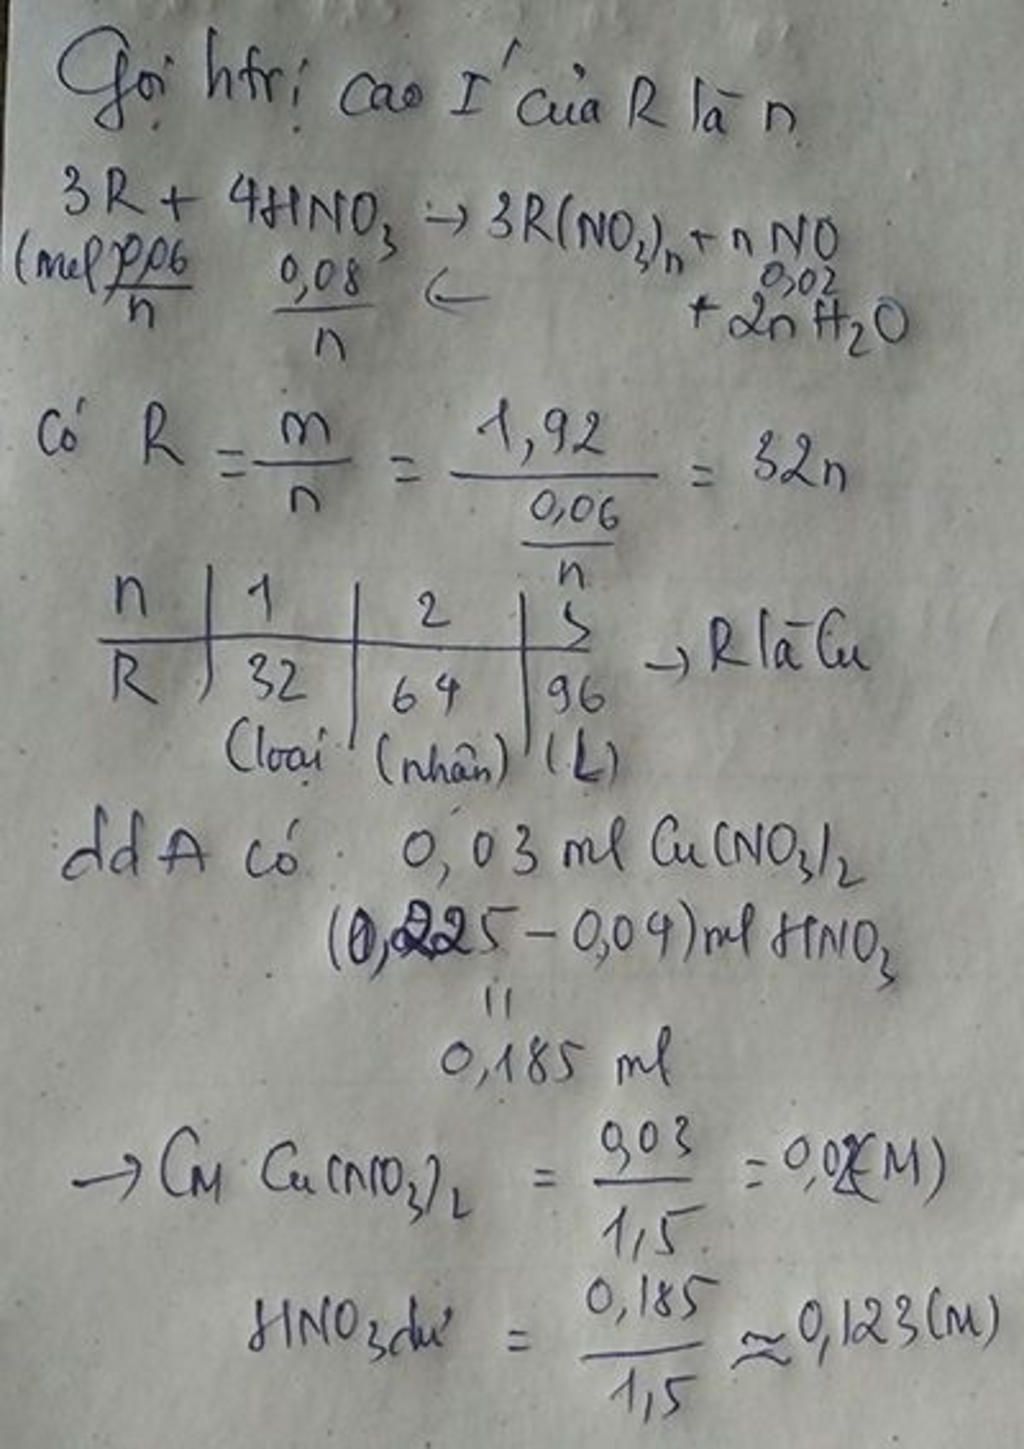 Gọi htrị cao I' của R là n
3R + 4HNO3 → 3R(NO3)n + nNO
(mol) 0,06/n 0,08/n ← 0,02
+ 2nH2O
Có R = m/n = 1,92/(0,06/n) = 32n
n | 1 | 2 | 3
R | 32 | 64 | 96 → R là Cu
(loại (nhân) (L)
ddA có. 0,03 ml Cu(NO3)2
(0,225 - 0,04) ml HNO3
=
0,185 ml
→ CM Cu(NO3)2 = 0,03/1,5 = 0,02(M)
HNO3 dư = 0,185/1,5 ≈ 0,123(M)